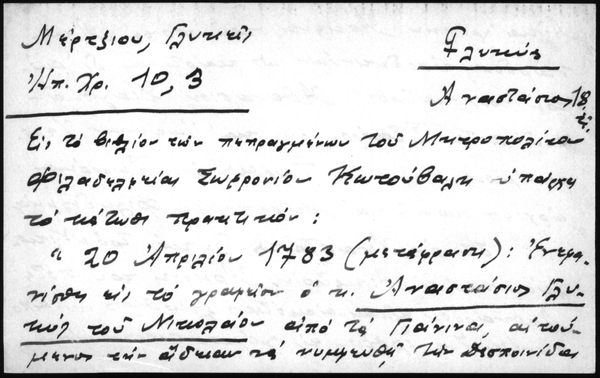 Μέρτζιου, Γλυκεῖς
Ἠπ. Χρ. 10, 3
Γλυκύς
Ἀναστάσιος 18
Εἰς τὸ βιβλίον τῶν πεπραγμένων τοῦ Μητροπολίτου
Φιλαδελφείας Σωφρονίου Κουτούβαλη ὑπάρχει
τὸ κάτωθι πρακτικόν:
" 20 Ἀπριλίου 1783 (μετάφρασις): Ἐνεφα-
νίσθη εἰς τὸ γραφεῖον ὁ κ. Ἀναστάσιος Γλυ-
κὺς τοῦ Νικολάου ἀπὸ τὰ Γιάνινα, αἰτού-
μενος τὴν ἄδειαν νὰ νυμφευθῇ τὴν Δεσποινίδα